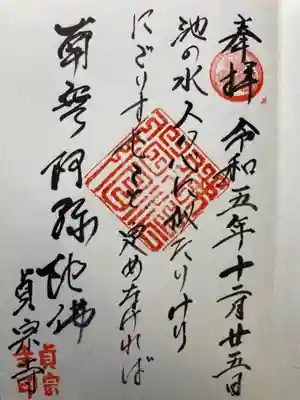 奉拝 令和五年十二月廿五日
池の水 人の心に似たりけり
にごりすむこと定めなければ
南無阿弥陀佛
貞宗寺
貞宗
寺印